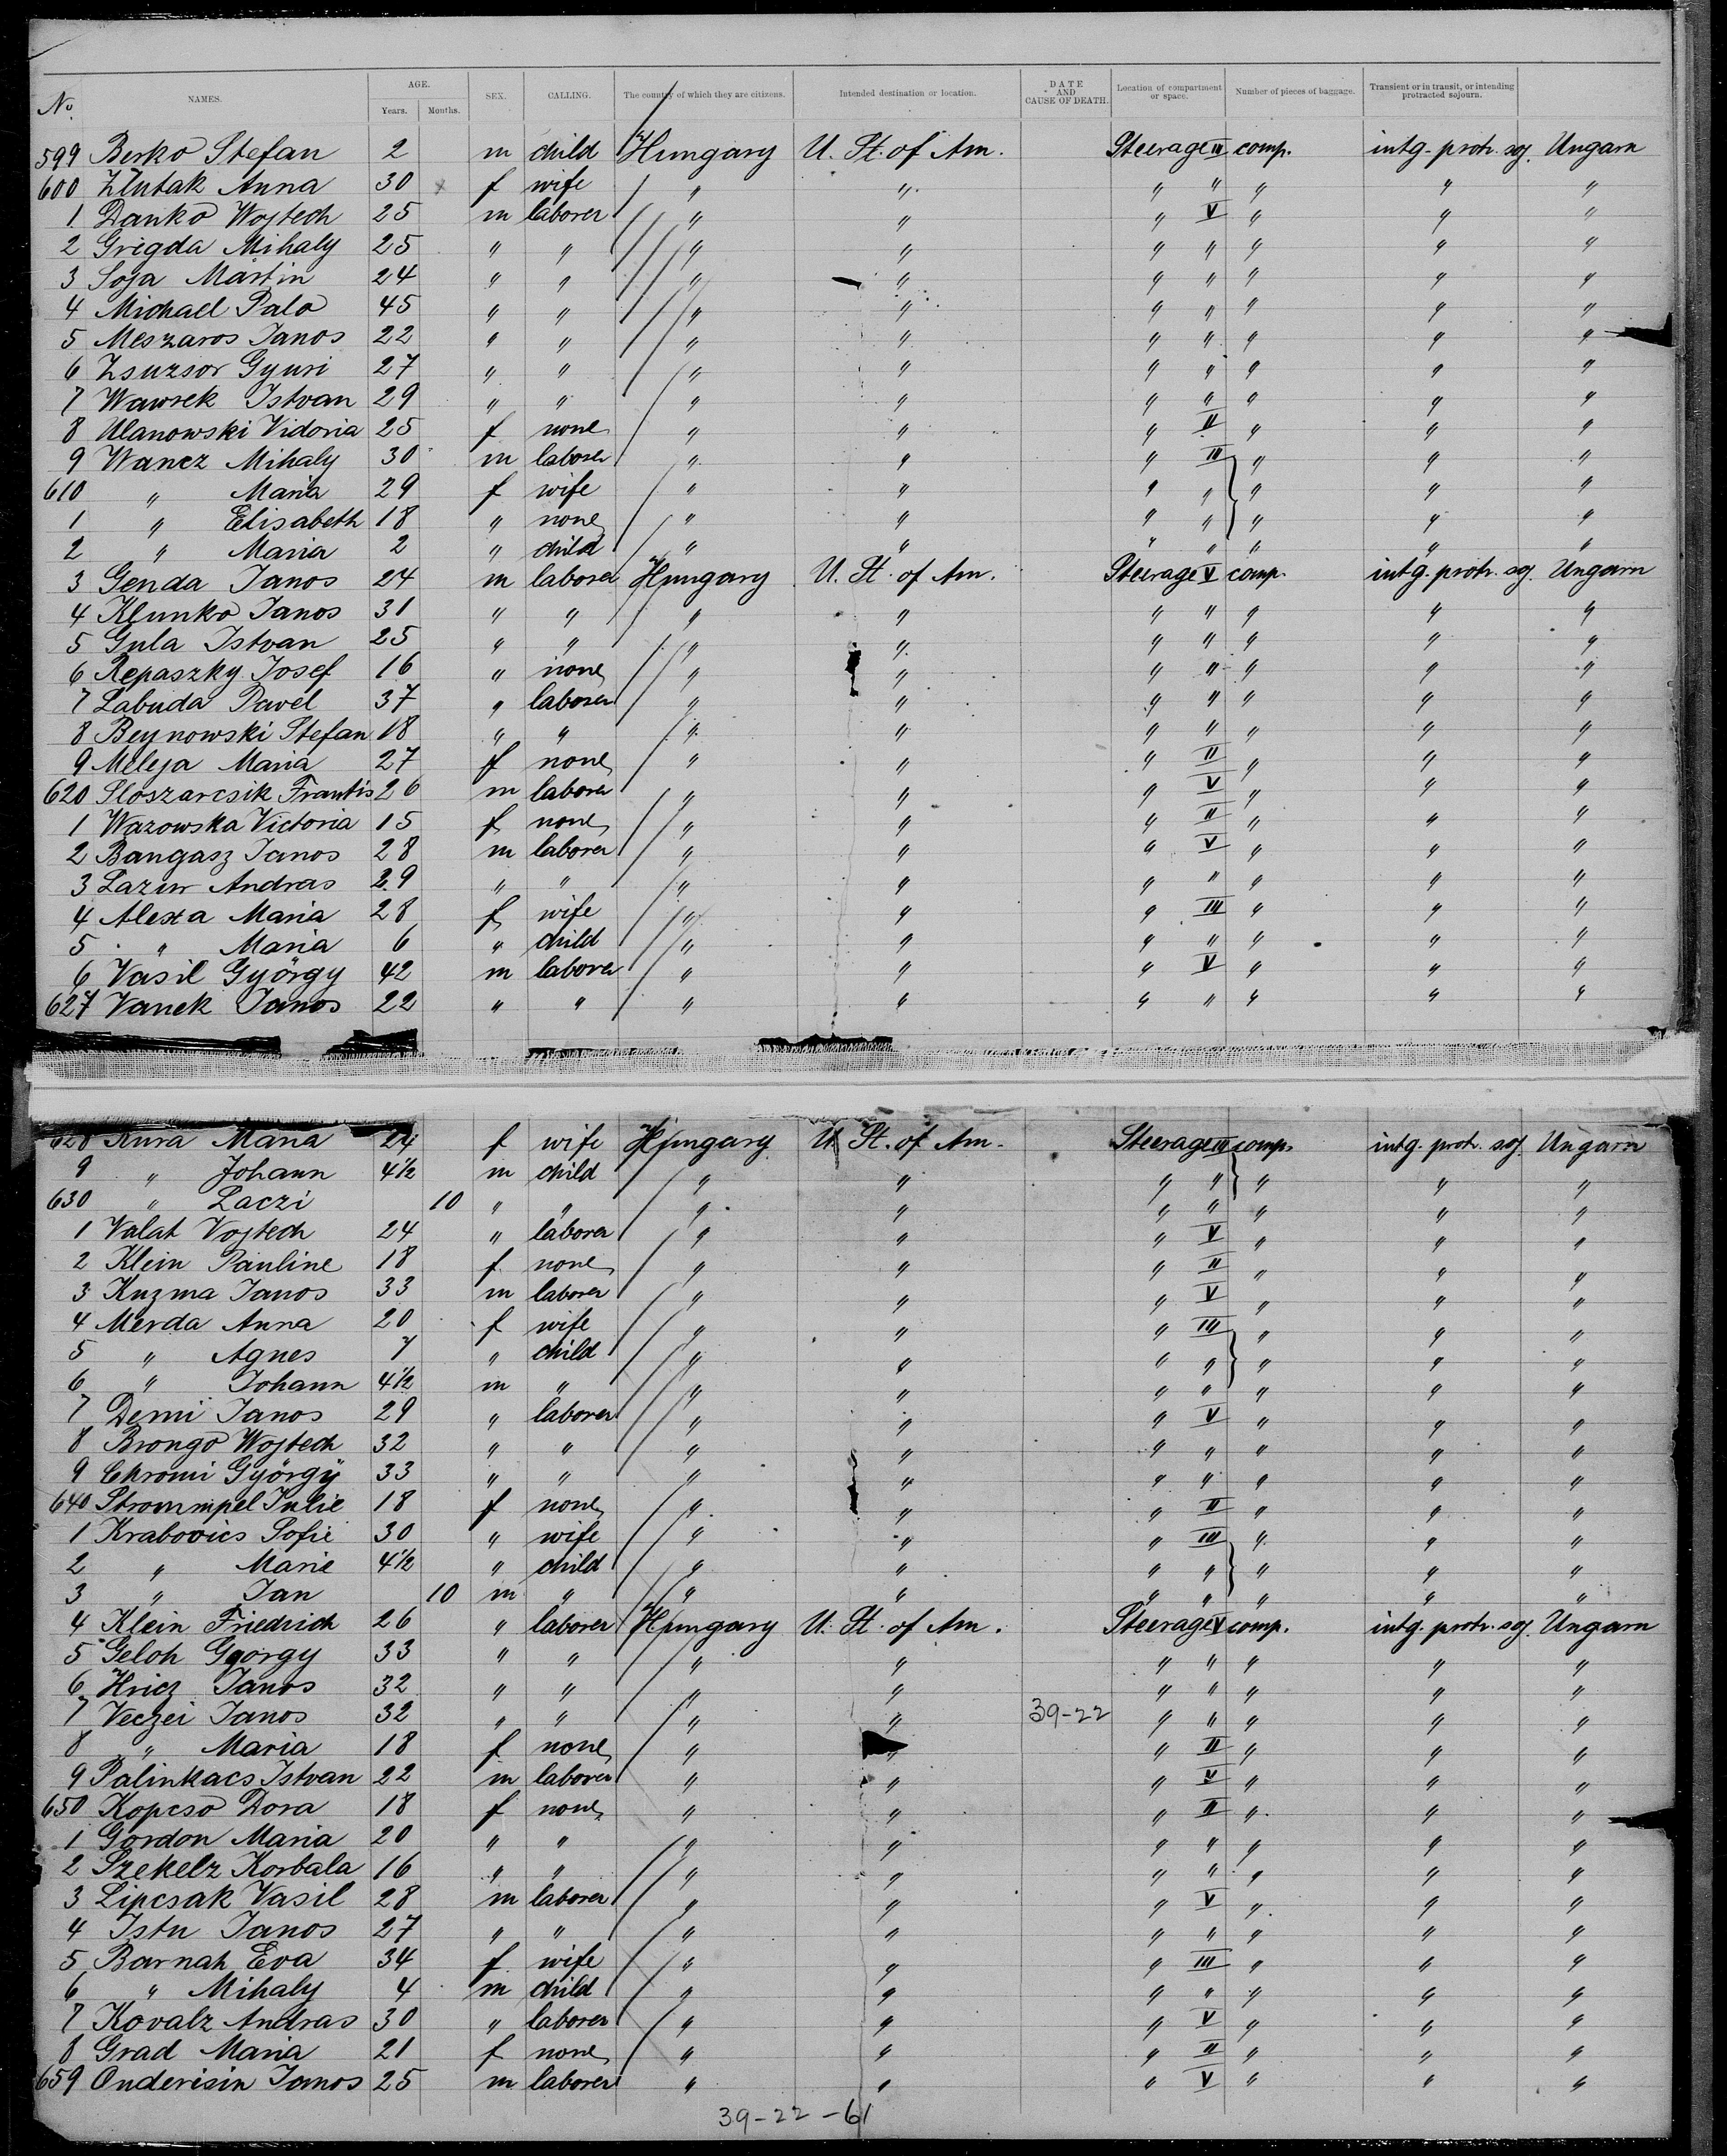 No. NAMES. AGE. Years. Months. SEX. CALLING. The country of which they are citizens. Intended destination or location. DATE AND CAUSE OF DEATH. Location of compartment or space. Number of pieces of baggage. Transient or in transit, or intending protracted sojourn.
599 Berko Stefan 2 m child Hungary U. St. of Am. Steerage III comp. intg. protr. soj. Ungarn
600 Zlutak Anna 30 f wife " " " " " " "
1 Danko Wojtech 25 m laborer " " " V " " "
2 Gregda Mihaly 25 " " " " " " " " "
3 Soja Martin 24 " " " " " " " " "
4 Michael Palo 45 " " " " " " " " "
5 Meszaros Janos 22 " " " " " " " " "
6 Zsuzsor Gyuri 27 " " " " " " " " "
7 Wawrek Istvan 29 " " " " " " " " "
8 Ulanowski Victoria 25 f none " " " II " " "
9 Wancz Mihaly 30 m laborer " " " III " " "
610 " Maria 29 f wife " " " " " " "
1 " Elisabeth 18 " none " " " " " " "
2 " Maria 2 " child " " " " " " "
3 Genda Janos 24 m laborer Hungary U. St. of Am. Steerage V comp. intg. protr. soj. Ungarn
4 Klunko Janos 31 " " " " " " " " "
5 Gula Istvan 25 " " " " " " " " "
6 Repaszky Josef 16 " none " " " " " " "
7 Labuda Pavel 37 " laborer " " " " " " "
8 Beynowski Stefan 18 " " " " " " " " "
9 Meleja Maria 27 f none " " " II " " "
620 Sloszarcsik Frantis 26 m laborer " " " V " " "
1 Wazowska Victoria 15 f none " " " II " " "
2 Bangasz Janos 28 m laborer " " " V " " "
3 Lazur Andras 29 " " " " " " " " "
4 Alexa Maria 28 f wife " " " III " " "
5 " Maria 6 " child " " " " " " "
6 Vasil György 42 m laborer " " " V " " "
627 Vanek Janos 22 " " " " " " " " "
628 Kura Maria 24 f wife Hungary U. St. of Am. Steerage III comp. intg. protr. soj. Ungarn
9 " Johann 4½ m child " " " " " " "
630 " Laczi 10 " " " " " " " " "
1 Valat Vojtech 24 " laborer " " " V " " "
2 Klein Pauline 18 f none " " " II " " "
3 Kuzma Janos 33 m laborer " " " V " " "
4 Merda Anna 20 f wife " " " III " " "
5 " Agnes 7 " child " " " " " " "
6 " Johann 4½ m " " " " " " " "
7 Demi Janos 29 " laborer " " " V " " "
8 Brongo Wojtech 32 " " " " " " " " "
9 Chromi György 33 " " " " " " " " "
640 Strommpel Julie 18 f none " " " II " " "
1 Krabovics Sofie 30 " wife " " " III " " "
2 " Marie 4½ " child " " " " " " "
3 " Jan 10 m " " " " " " " "
4 Klein Friedrich 26 " laborer Hungary U. St. of Am. Steerage V comp. intg. protr. soj. Ungarn
5 Geloh Gyorgy 33 " " " " " " " " "
6 Hricz Janos 32 " " " " " " " " "
7 Veczei Janos 32 " " " " 39-22 " " " " "
8 " Maria 18 f none " " " II " " "
9 Palinkacs Istvan 22 m laborer " " " V " " "
650 Kopcso Dora 18 f none " " " II " " "
1 Gordon Maria 20 " " " " " " " " "
2 Szekelz Korbala 16 " " " " " " " " "
3 Lipcsak Vasil 28 m laborer " " " V " " "
4 Istu Janos 27 " " " " " " " " "
5 Barnah Eva 34 f wife " " " III " " "
6 " Mihaly 4 m child " " " " " " "
7 Kovalz Andras 30 " laborer " " " V " " "
8 Grad Maria 21 f none " " " II " " "
659 Onderisin Janos 25 m laborer " " " V " " "
39-22-61